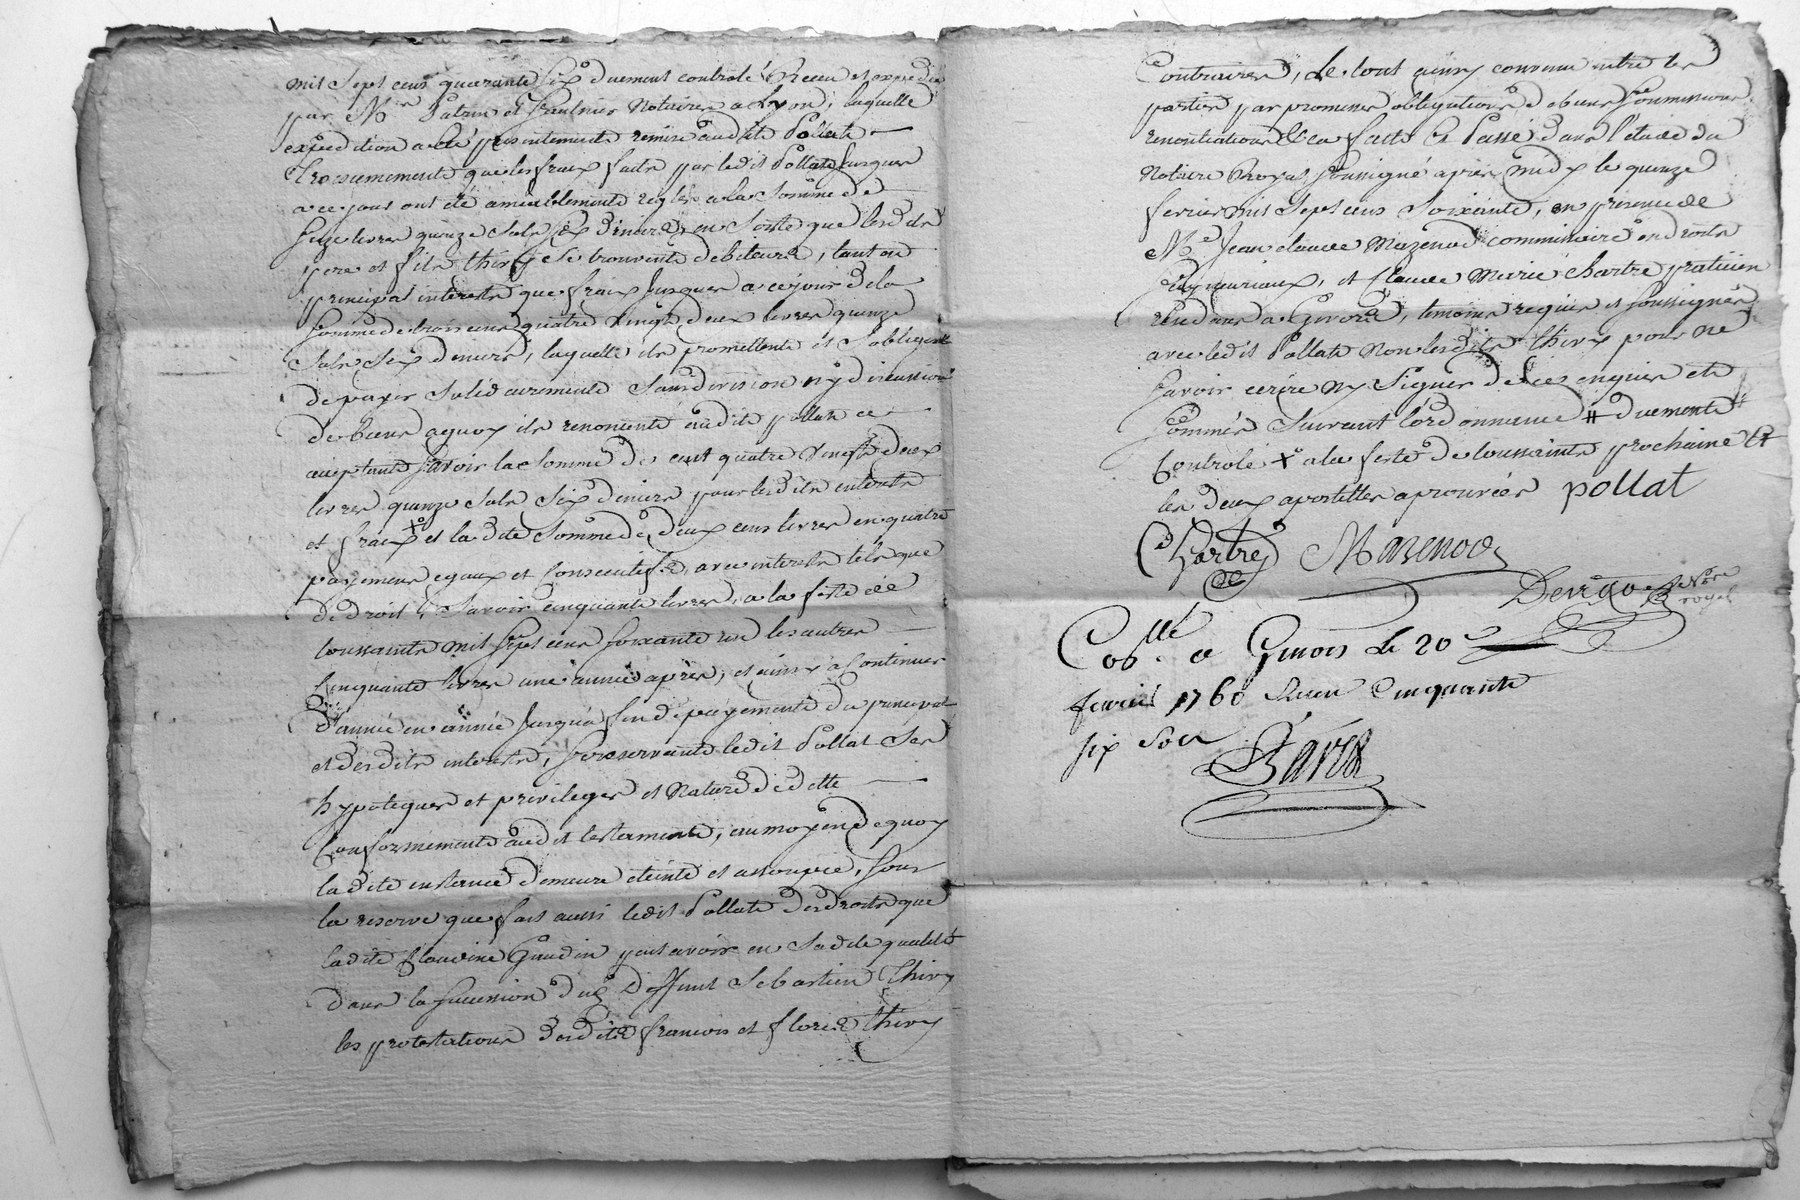 mil sept cens quarante six duement controlé Receu et expedié
par Mes Patrin et Saulnier Notaires a Lyon, laquelle
expedition a eté presentement remise audit Pollat
troisiemement que les fraix faits par ledit Pollat jusques
a ce jour ont eté amiablement reglés a la somme de
seize livres quinze sols six deniers, en sorte que lesdits
pere et fils thiry se trouvent debiteurs, tant en
principal interests que fraix jusques a ce jour de la
somme de trois cens quatre vingt deux livres quinze
sols six deniers, laquelle ils promettent et s'obligent
de payer solidairement sans division ny discussion
de biens a quoy ils renoncent audit pollat ce
acceptant savoir la somme de cent quatre vingt deux
livres quinze sols six deniers pour lesdits interests
et fraix X et la dite somme de deux cens livres en quatre
payemens egaux et consecutifs, avec interests tels que
de droit, savoir cinquante livres, a la feste de
toussaints mil sept cens soixante un les autres
cinquante livres une année après, et ainsy a continuer
d'année en année jusqu'a fin de payement du principal
et desdits interests, se reservant ledit Pollat ses
hypoteques et privileges et nature de dette
conformement audit testament, au moyen de quoy
ladite instance demeure eteinte et assoupie, sous
la reserve que fait aussi ledit Pollat des droits que
ladite Claudine Gaudin peut avoir en sadite qualité
dans la succession du deffunt Sebastien thiry
les protestations desdits francois et floris thiry
Contraires, Le tout ainsy convenu entre les
parties par promesses obligations de biens soumissions
renontiations &ca fait et Passé dans l'etude du
Notaire Royal soussigné après midy le quinze
fevrier mil sept cens soixante, en presence de
Me Jean claude Mazenod commissaire en droits
seigneuriaux, et Claude Marie chartre praticien
residans a Givors, temoins requis et soussignés
avec ledit Pollat non lesdits thiry pour ne
savoir ecrire ny signer de ce enquis et
sommés suivant l'ordonnance # duement #
Controlé X a la feste de toussaints prochaine Et
les deux apostilles aprouvées pollat
Chartre Mazenod
Not.re royal
Co.llé a Givors le 20
fevrier 1760 Receu Cinquante
six sols